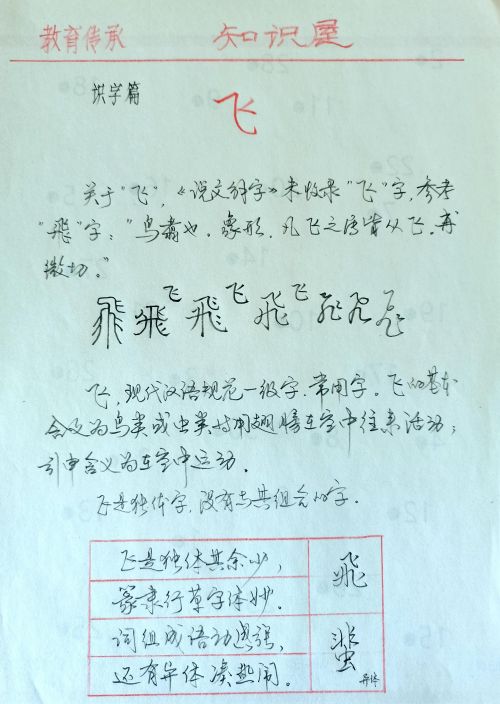 教育传承 知识屋
拱字篇
飞
关于“飞”，《说文解字》未收录“飞”字，参考
“飛”字：“鸟翥也。象形。凡飞之属皆从飞。甫
微切。”
飛飛飞飛飞飛飞飛飞飞
飞，现代汉语规范一级字，常用字。飞的基本
含义为鸟类或虫类等用翅膀在空中往来活动；
引申含义为在空中运动。
飞是独体字，没有与其组合的字。
飞是独体其余少，
篆隶行草字体妙。
词组成语功
还有异体凑热闹。
飛
蜚
异体